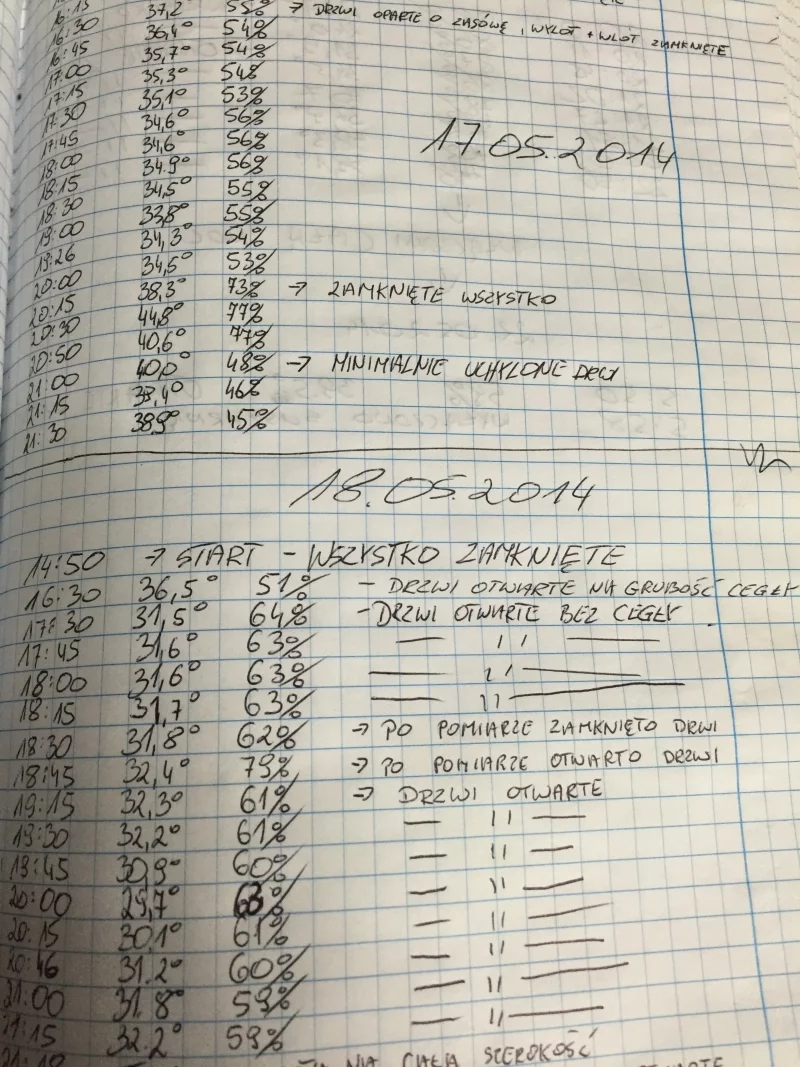 16:15 37,2° 55% → DRZWI OPARTE O ZASÓWĘ, WYLOT + WLOT ZAMKNIĘTE
16:30 36,4° 54%
16:45 35,7° 54%
17:00 35,3° 54%
17:15 35,1° 53%
17:30 34,6° 56%
17:45 34,6° 56%
18:00 34.9° 56%
18:15 34,5° 55%
18:30 33,8° 55%
19:00 34,3° 54%
19:26 34,5° 53%
20:00 38,3° 73% → ZAMKNIĘTE WSZYSTKO
20:15 44,8° 77%
20:30 40,6° 77%
20:50 40,0° 48% → MINIMALNIE UCHYLONE
21:00 39,4° 46%
21:15 38,9° 45%
21:30
17.05.2014
18.05.2014
14:50 → START - WSZYSTKO ZAMKNIĘTE
16:30 36,5° 51% - DRZWI OTWARTE NA GRUBOŚĆ CEGŁY
17:30 31,5° 64% - DRZWI OTWARTE BEZ CEGŁY
17:45 31,6° 63% — '' —
18:00 31,6° 63% — '' —
18:15 31,7° 63% — '' —
18:30 31,8° 62% → PO POMIARZE ZAMKNIĘTO DRWI
18:45 32,4° 79% → PO POMIARZE OTWARTO DRZWI
19:15 32,3° 61% → DRZWI OTWARTE
19:30 32,2° 61% — '' —
19:45 30,9° 60% — '' —
20:00 29,7° 63% — '' —
20:15 30,1° 61% — '' —
20:46 31.2° 60% — '' —
21:00 31.8° 59% — '' —
21:15 32.2° 59% — '' —
NA CAŁĄ SZEROKOŚĆ